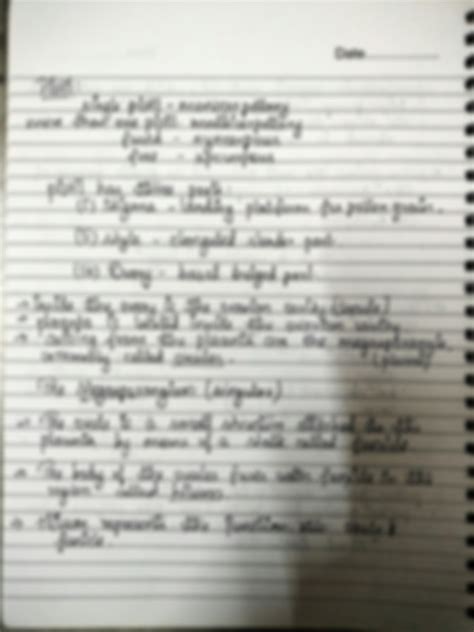 Date
single pistil - monocarpellary
more than one pistil multicarpellary
fused - syncarpous
free - apocarpous
pistil has three parts
(i) Stigma - landing platform for pollen grains.
style - elongated slender part
(iii) Ovary - basal bulged part
→ Inside the ovary is the ovarian cavity (locule)
→ placenta is located inside the ovarian cavity
→ Arising from the placenta are the megasporangia
normally called ovules.
The Megasporangium (
→ The ovule is a small structure attached to the
placenta by means of a stalk called funicle.
→ The body of the ovule fuses with funicle in the
region called hilum.
→ Hilum represents the junction ovule &
funicle.